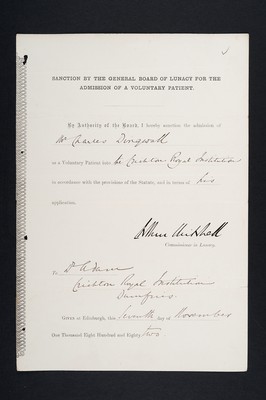 SANCTION BY THE GENERAL BOARD OF LUNACY FOR THE
ADMISSION OF A VOLUNTARY PATIENT.
By Authority of the Board, I hereby sanction the admission of
Mr Charles Dingwall
as a Voluntary Patient into the Crichton Royal Institution
in accordance with the provisions of the Statute, and in terms of his
application.
Arthur Mitchell
Commissioner in Lunacy.
To Dr Adam
Crichton Royal Institution
Dumfries.
Given at Edinburgh, this Seventh day of November
One Thousand Eight Hundred and Eighty two